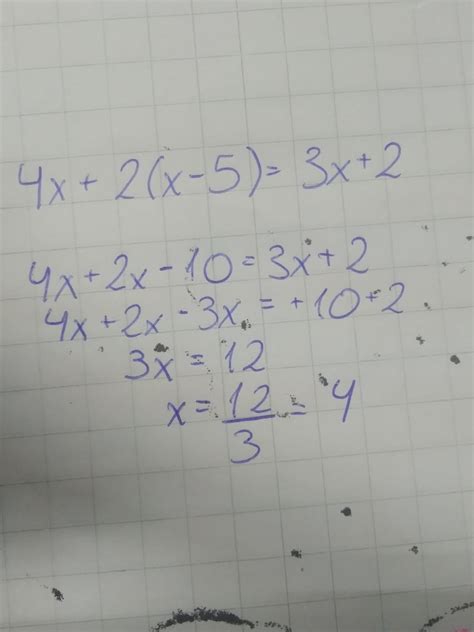 4x + 2(x-5) = 3x+2
4x+2x-10=3x+2
4x+2x-3x = +10+2
3x = 12
x = 12/3 = 4